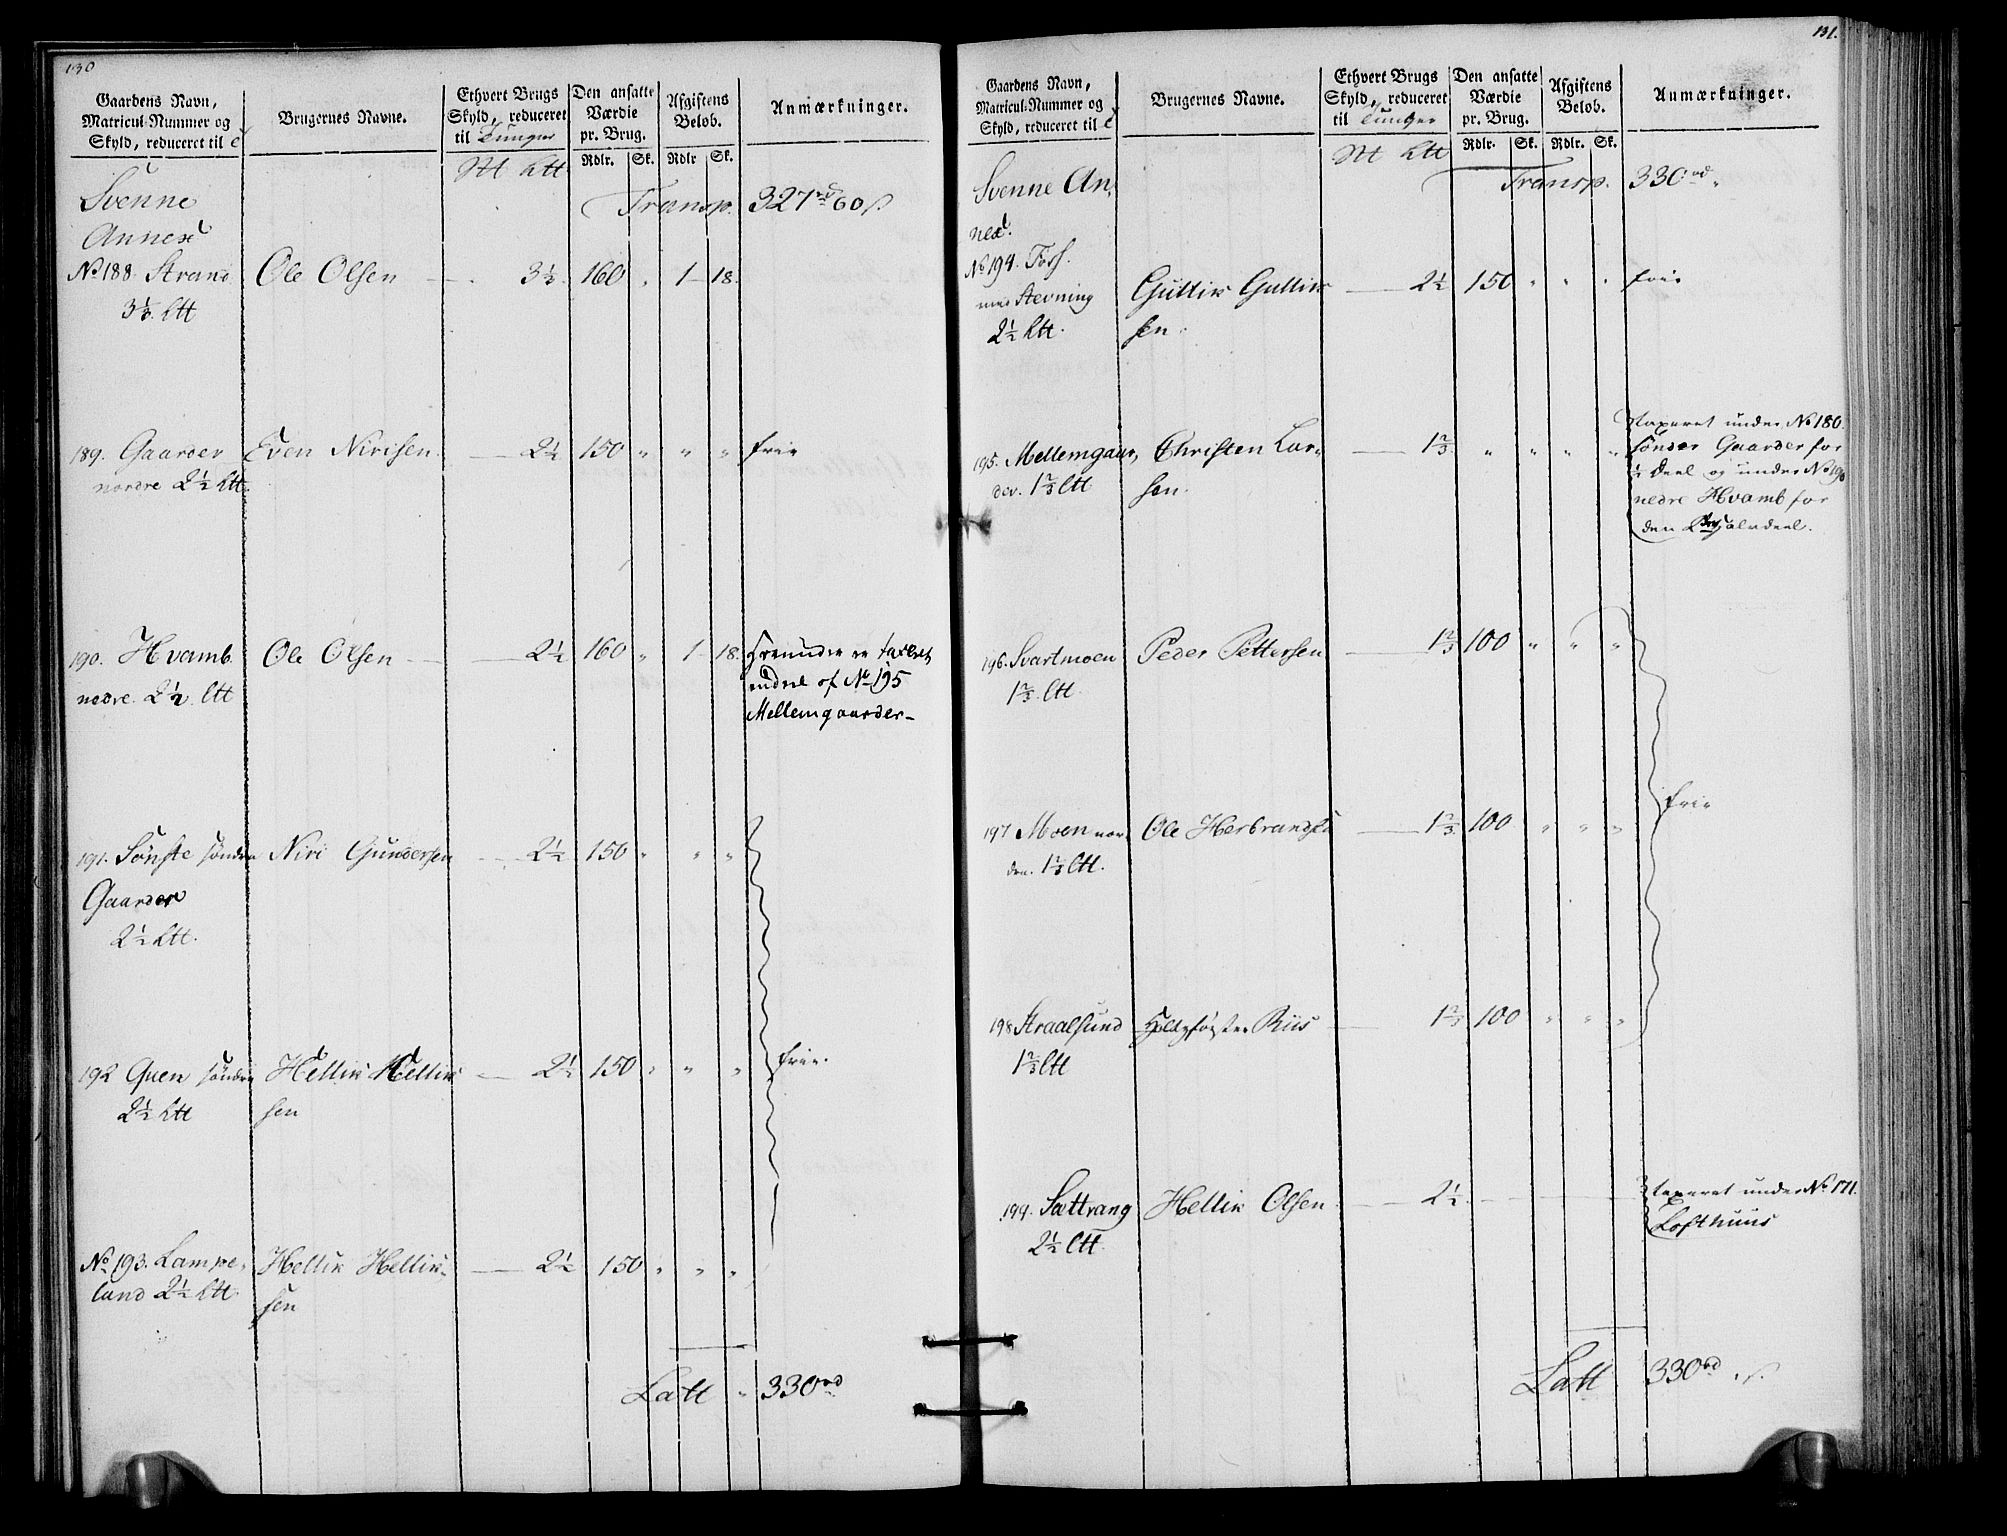 130
Gaardens Navn,
Matricul-Nummer og
Skyld, reduceret til
Brugernes Navne.
Ethvert Brugs
Skyld, reduceret
til Tunger
Den ansatte
Værdie
pr. Brug.
Afgiftens
Beløb.
Anmærkninger.
Rdlr. Sk. Rdlr Sk.
Svenne
Annex
Transp. 327 rd 60 s
No 188. Strand Ole Olsen 3⅓. 160 " 1 - 18.
3⅓. Ltt
189. Gaarder Even Nirisen. 2½ 150 " " " frie
nordre 2½ Ltt.
190. Hvamb. Ole Olsen 2½ 160 " 1 - 18. Herunder er taxeret
nedre. 2½. Ltt endeel of No 195
Mellemgaarder
191. Sønste søndre Niri Gundersen 2½ 150 " " "
Gaarder
2½ Ltt.
192 Quen søndre Hellik Hellik 2½ 150 " " " frie.
2½ Ltt sen
No 193. Lampe- Hellik Hellik- 2½ 150 " " "
land 2½ Ltt. sen
Latt " 330 rd
131.
Gaardens Navn,
Matricul-Nummer og
Skyld, reduceret til
Brugernes Navne.
Ethvert Brugs
Skyld, reduceret
til Tunger
Den ansatte
Værdie
pr. Brug.
Afgiftens
Beløb.
Anmærkninger.
Rdlr. Sk. Rdlr. Sk.
Svenne An-
nex.
Transp. 330 rd "
No 194. Foss.
med Stevning Gullik Gullik 2½ 150 " " " frie
2½ Ltt. sen.
195. Mellemgaar- Christen Lar- 1⅔ " " " "
der. 1⅔ Ltt sen.
taxeret under No 180.
søndre Gaarder for
½ Deel og under No 190
nedre Hvamb for
den Halvdeel.
196. Svartmoen Peder Pettersen 1⅔ 100 " " "
1⅔. Ltt.
197 Moen nor- Ole Herbrands 1⅔ 100 " " " frie
den. 1⅔ Ltt.
198 Straalsund Riis 1⅔ 100 " " "
1⅔ Ltt
199. Sættrang Hellik Olsen. 2½. taxeret under No 171.
2½ Ltt. Lofthuus
Latt 330 rd " s.